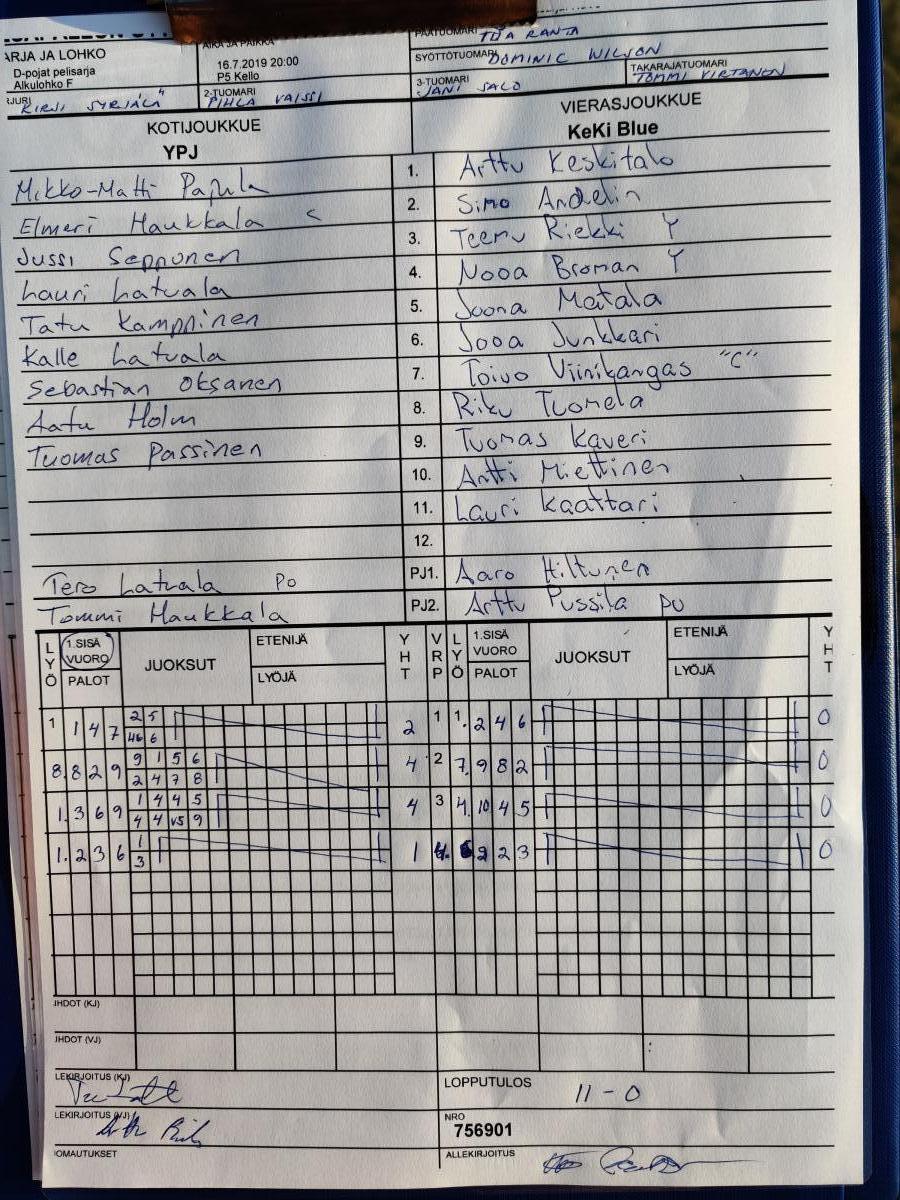 PÄÄTUOMARI TUA RANTA
ARJA JA LOHKO
AIKA JA PAIKKA
SYÖTTÖTUOMARI DOMINIC WILSON
D-pojat pelisarja
Alkulohko F
16.7.2019 20:00
P5 Kello
3-TUOMARI JANI SALO
TAKARAJATUOMARI TOMMI VIRTANEN
KIRSI SYRJÄLÄ
2-TUOMARI PIHLA VAISSI
KOTIJOUKKUE
VIERASJOUKKUE
YPJ
KeKi Blue
Mikko-Matti Pajula 1. Arttu Keskitalo
Elmeri Haukkala C 2. Simo Andelin
Jussi Sepponen 3. Teemu Riekki Y
Lauri Latvala 4. Nooa Broman Y
Tatu Kamppinen 5. Joona Matala
Kalle Latvala 6. Jooa Junkkari
Sebastian Oksanen 7. Toivo Viinikangas "C"
Aatu Holm 8. Riku Tuomela
Tuomas Passinen 9. Tuomas Kaveri
10. Antti Miettinen
11. Lauri Kaattari
12.
Tero Latvala PO PJ1. Aaro Hiltunen
Tommi Haukkala PJ2. Arttu Pussila PU
LYÖ 1.SISÄ VUORO PALOT JUOKSUT ETENIJÄ LYÖJÄ YHT VRP LYÖ 1.SISÄ VUORO PALOT JUOKSUT ETENIJÄ LYÖJÄ YHT
1 1 4 7 2 5 2 1 1. 2 4 6 0
46 6
8. 8 2 9 9 1 5 6 4 2 7. 9 8 2 0
2 4 7 8
1. 3 6 9 1 4 4 5 4 3 4. 10 4 5 0
4 4 V5 9
1. 2 3 6 1 1 4. 2 2 3 0
3
HDOT (KJ)
HDOT (VJ)
LEKIRJOITUS (KJ)
LOPPUTULOS 11-0
LEKIRJOITUS (VJ)
NRO
756901
OMAUTUKSET
ALLEKIRJOITUS